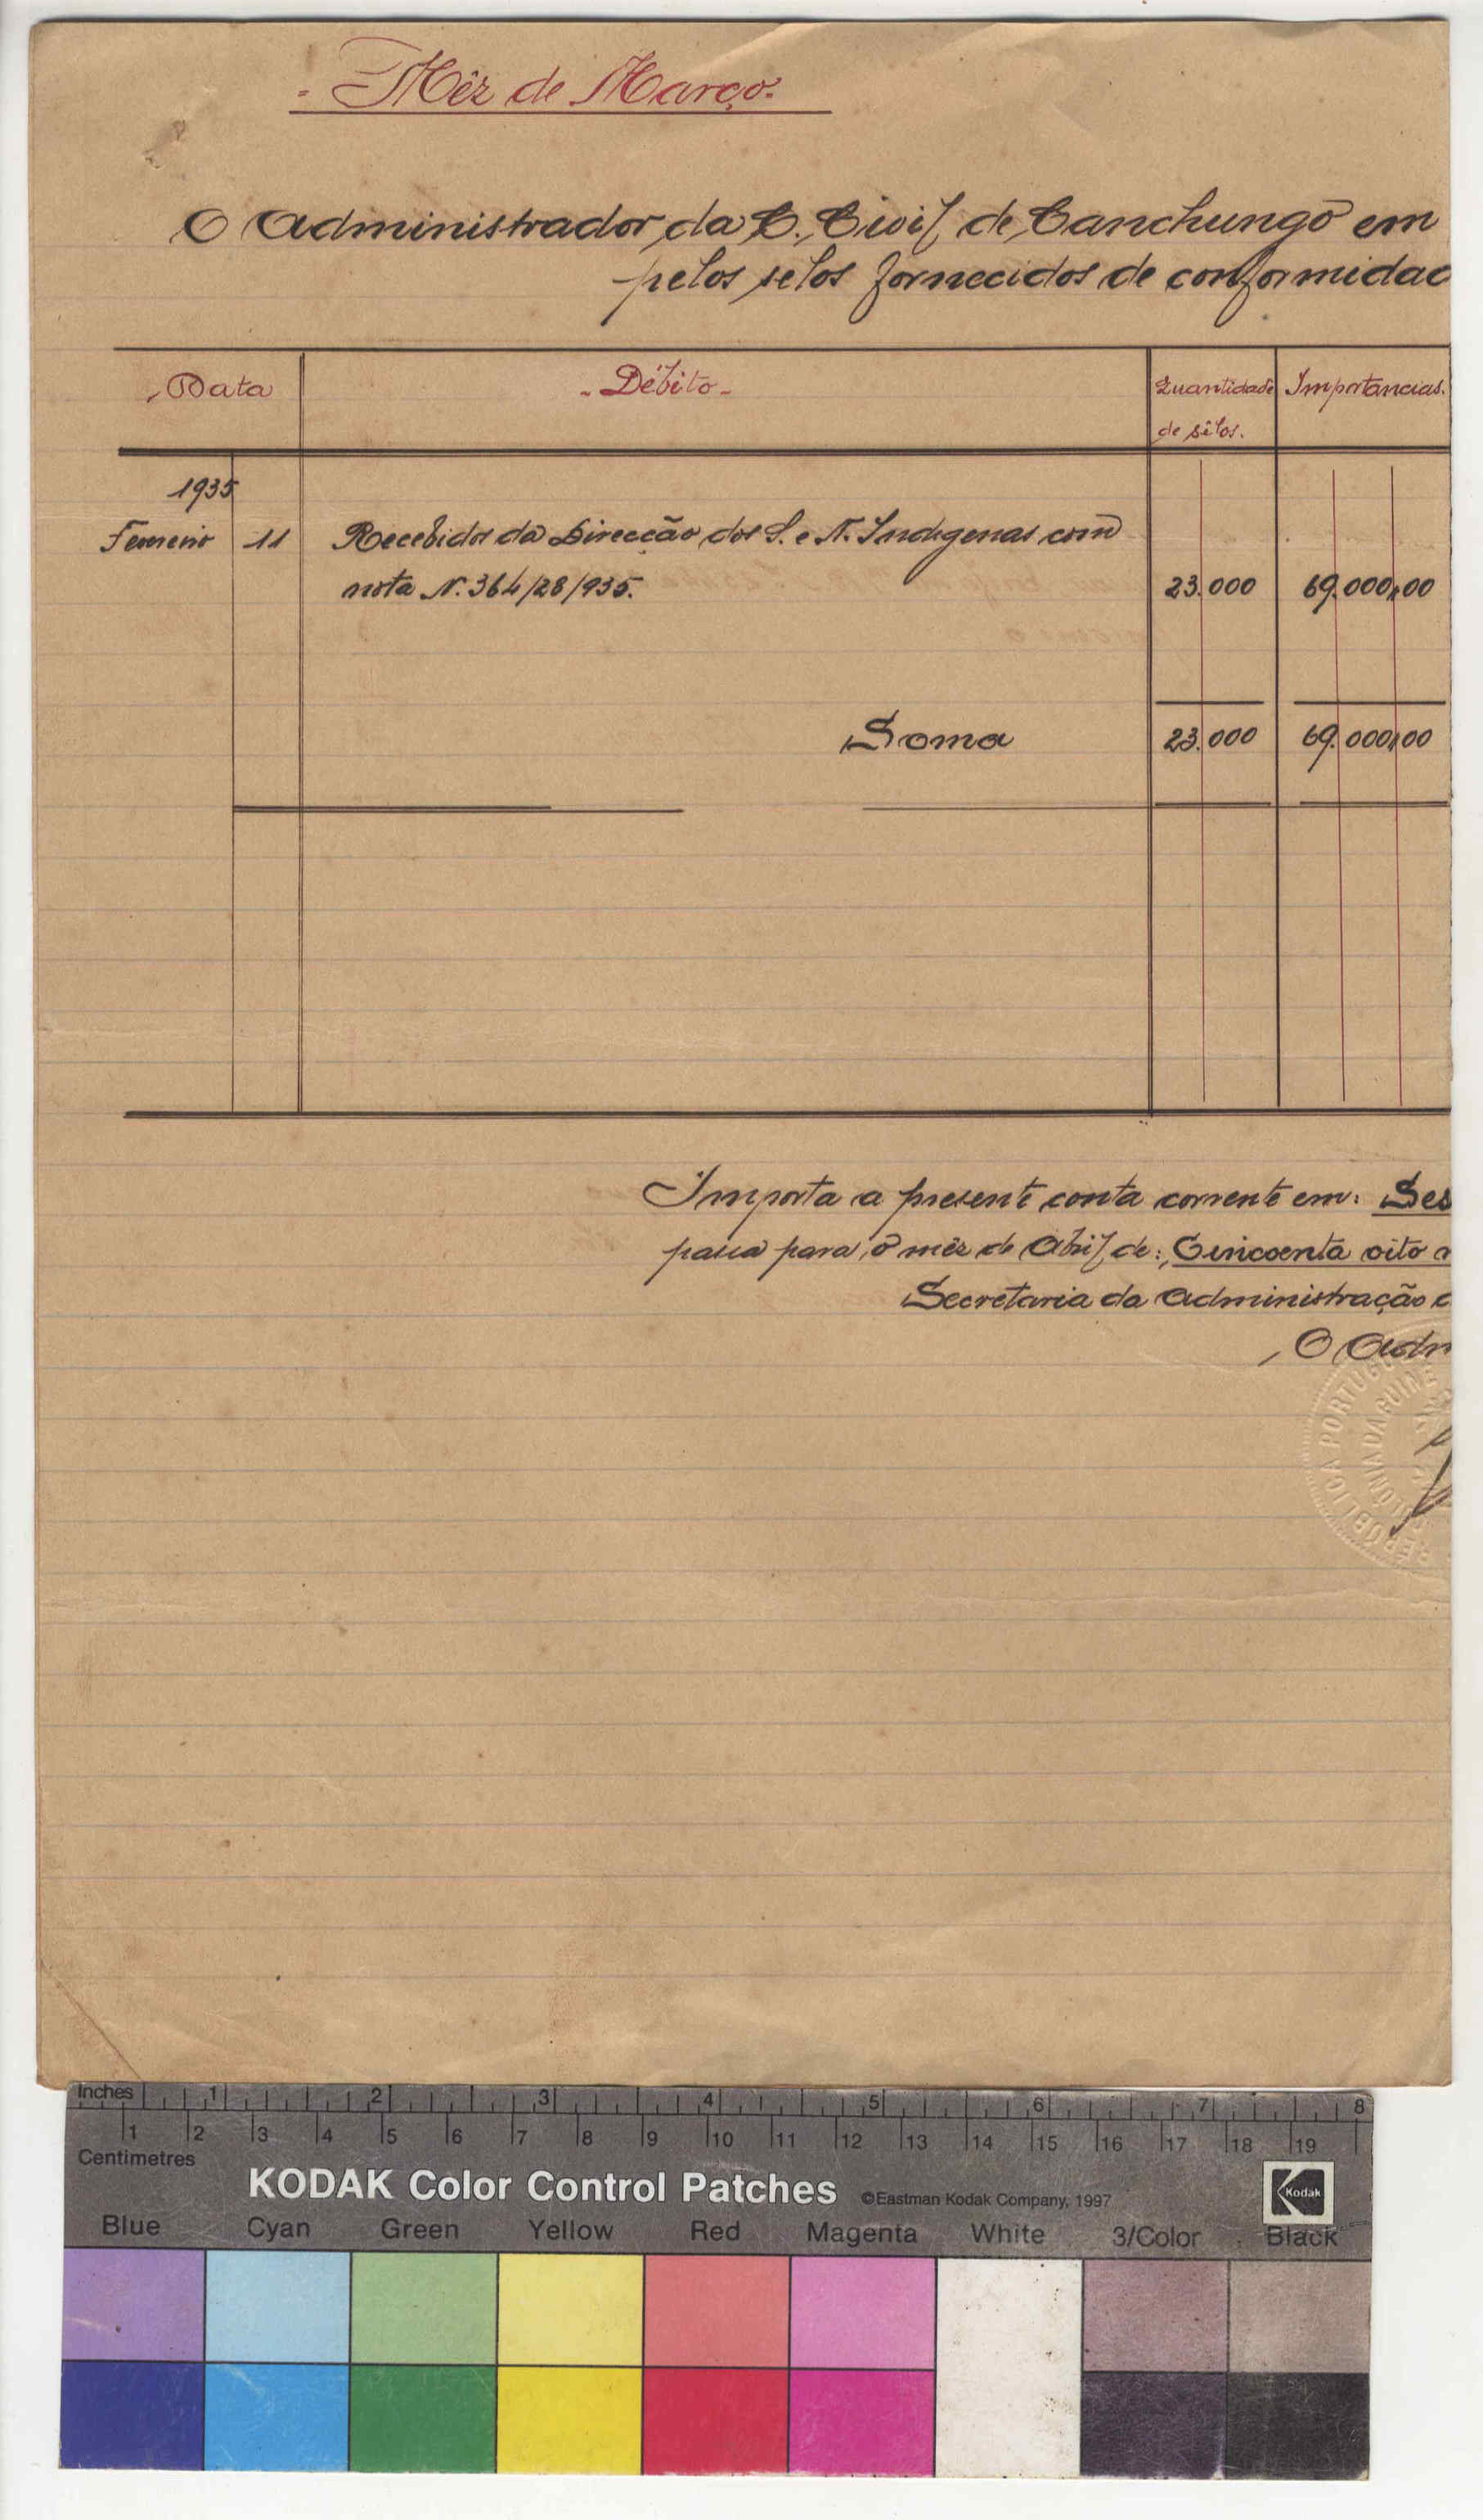 - Mêz de Março -
O Administrador da C. Civil de Canchungo em
pelos selos fornecidos de conformidad
Data
- Débito -
Quantidade
de sêlos.
Importancias.
1935
Fevereiro 11 Recebidos da Direcção dos S. e N. Indigenas com
nota N. 364/28/935. 23.000 69.000,00
Soma 23.000 69.000,00
Importa a presente conta corrente em: Ses
passa para o mêz de Abril de: Cincoenta oito
Secretaria da Administração
O Adm
REPUBLICA PORTUGU
COLONIA DA GUINÉ
Inches 1 2 3 4 5 6 7 8
1 2 3 4 5 6 7 8 9 10 11 12 13 14 15 16 17 18 19
Centimetres
KODAK Color Control Patches ©Eastman Kodak Company, 1997 Kodak
Blue Cyan Green Yellow Red Magenta White 3/Color Black